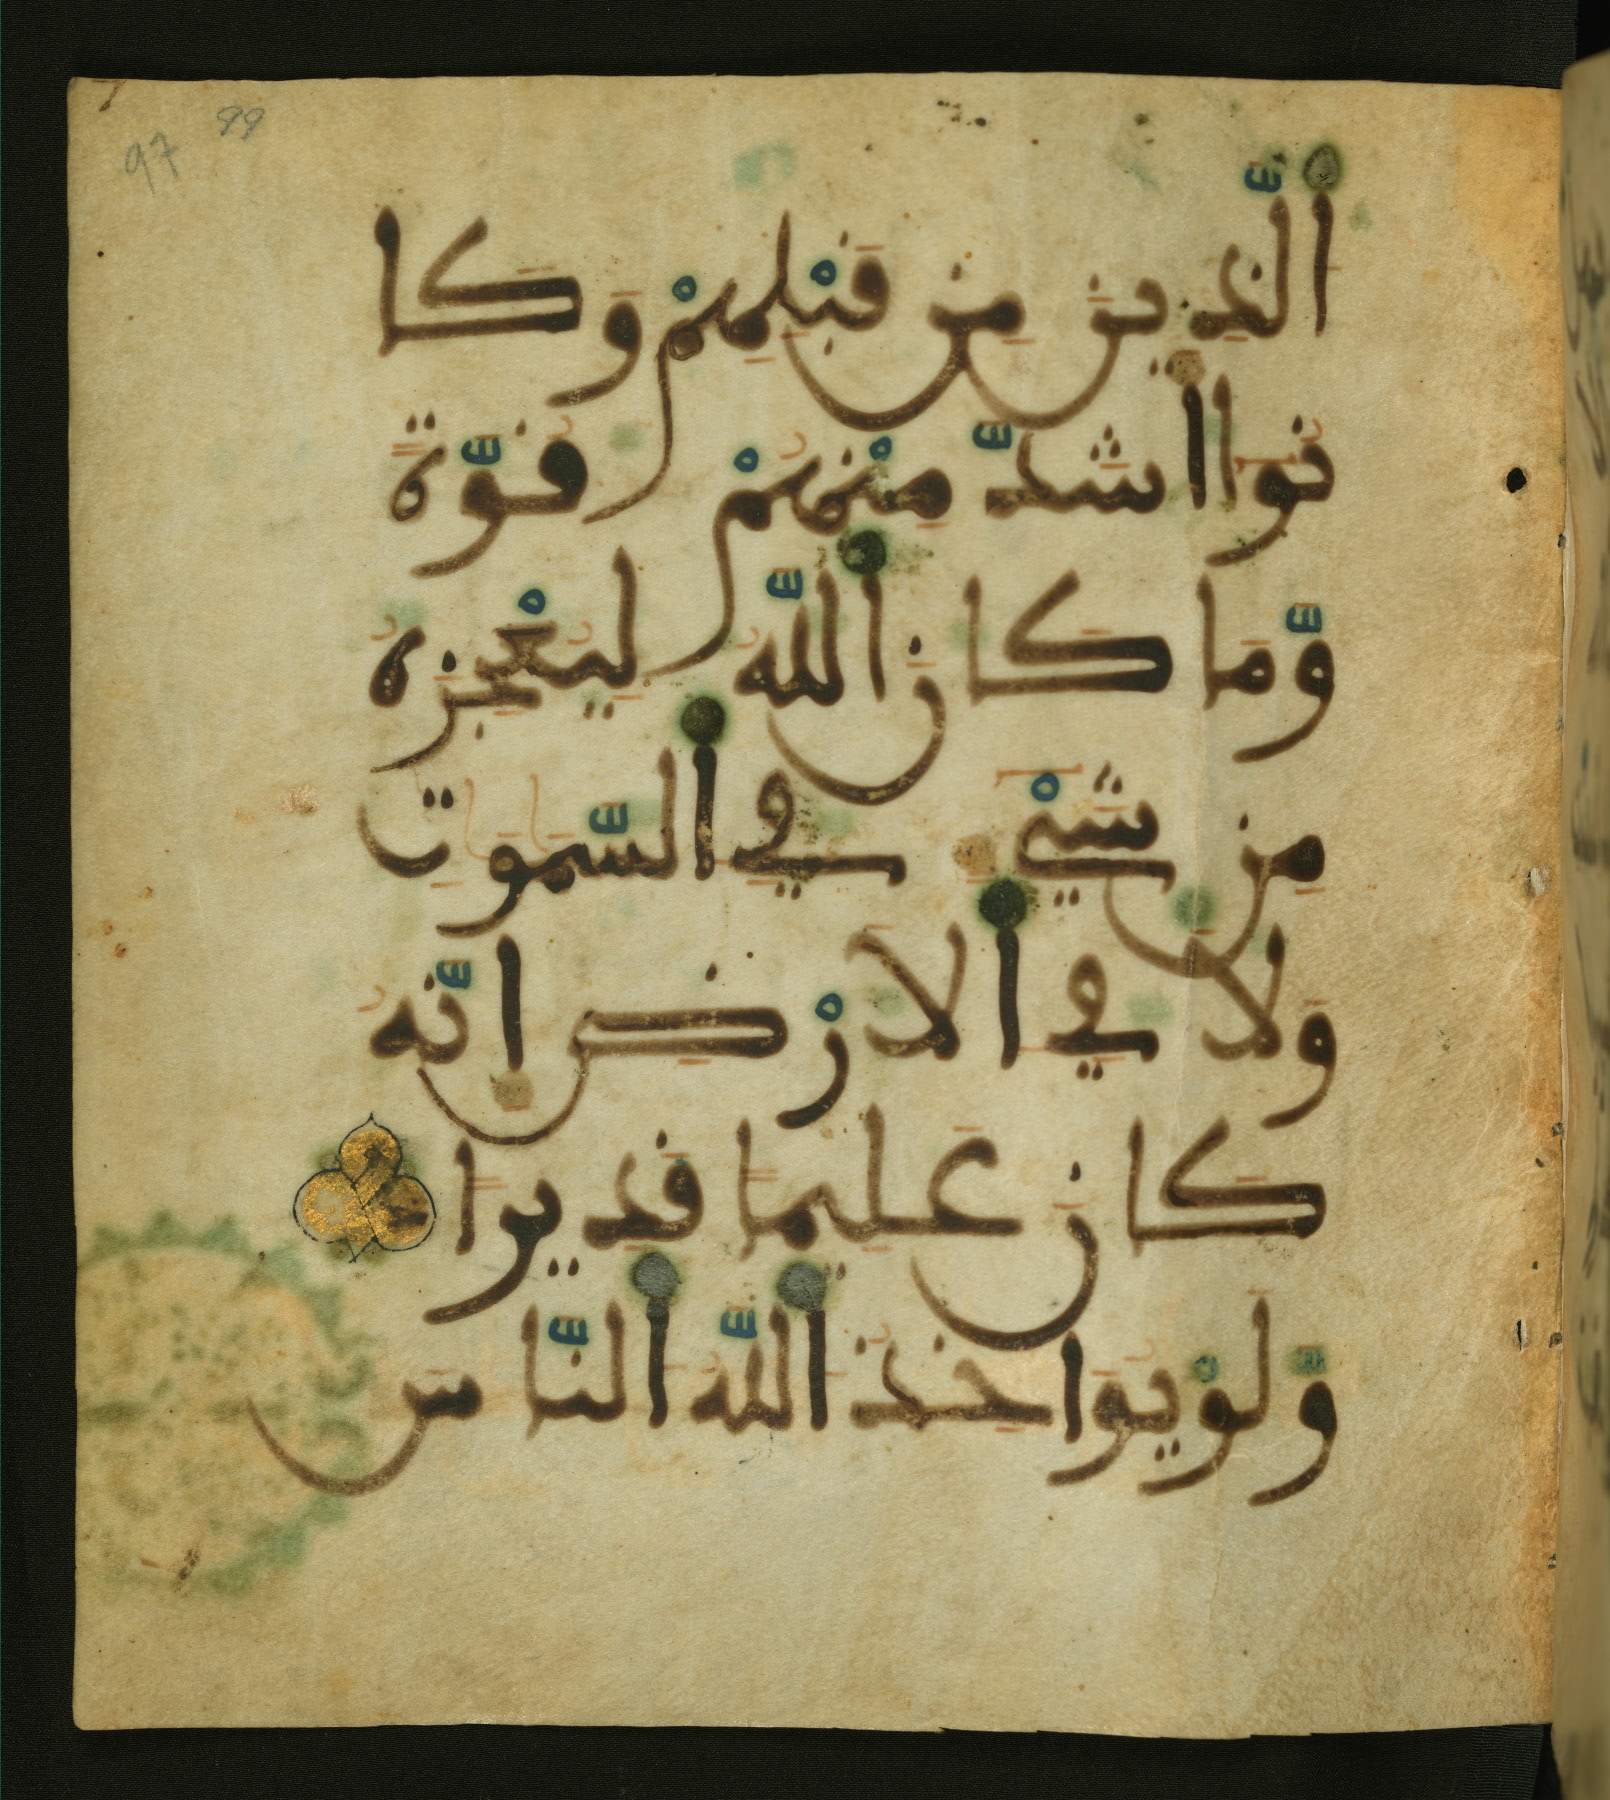 97 99
الذين من قبلهم وكا
نوا اشدّ منهم قوّة
وّما كان اللّه ليعجزه
من شيء في السّموت
ولا في الارض انّه
كان عليما قديرا
ولو يواخذ اللّه النّاس